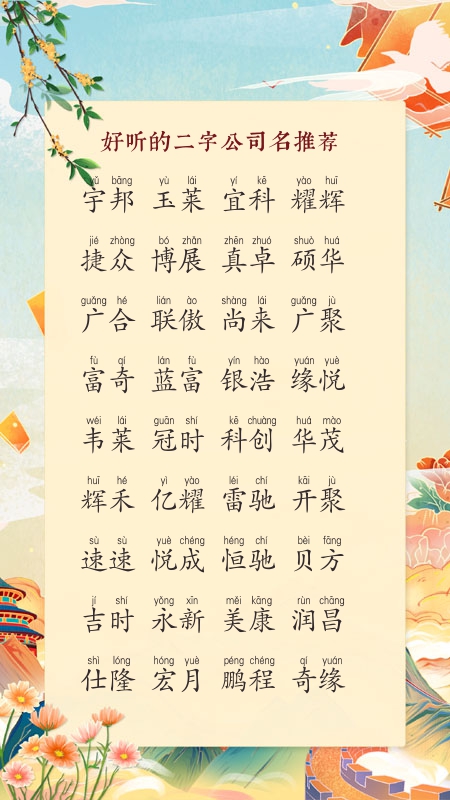 好听的二字公司名推荐
yǔ bāng yù lái yí kē yào huī
宇邦 玉莱 宜科 耀辉
jié zhòng bó zhǎn zhēn zhuó shuò huá
捷众 博展 真卓 硕华
guǎng hé lián ào shàng lái guǎng jù
广合 联傲 尚来 广聚
fù qí lán fù yín hào yuán yuè
富奇 蓝富 银浩 缘悦
wéi lái guān shí kē chuàng huá mào
韦莱 冠时 科创 华茂
huī hé yì yào léi chí kāi jù
辉禾 亿耀 雷驰 开聚
sù sù yuè chéng héng chí bèi fāng
速速 悦成 恒驰 贝方
jí shí yǒng xīn měi kāng rùn chāng
吉时 永新 美康 润昌
shì lóng hóng yuè péng chéng qí yuán
仕隆 宏月 鹏程 奇缘